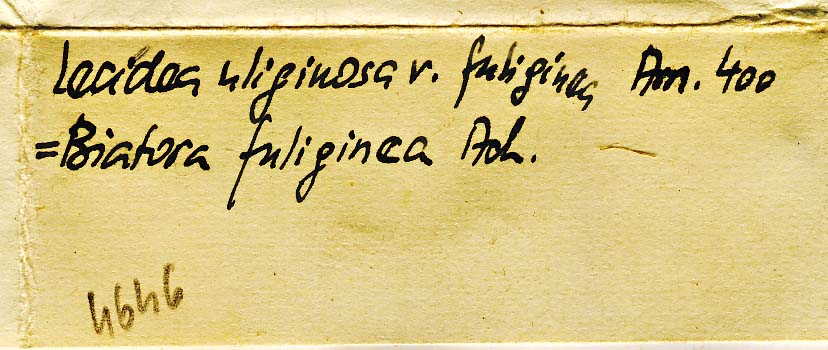 Lecidea uliginosa v. fuliginea Am. 400
= Biatora fuliginea Ach.
4646